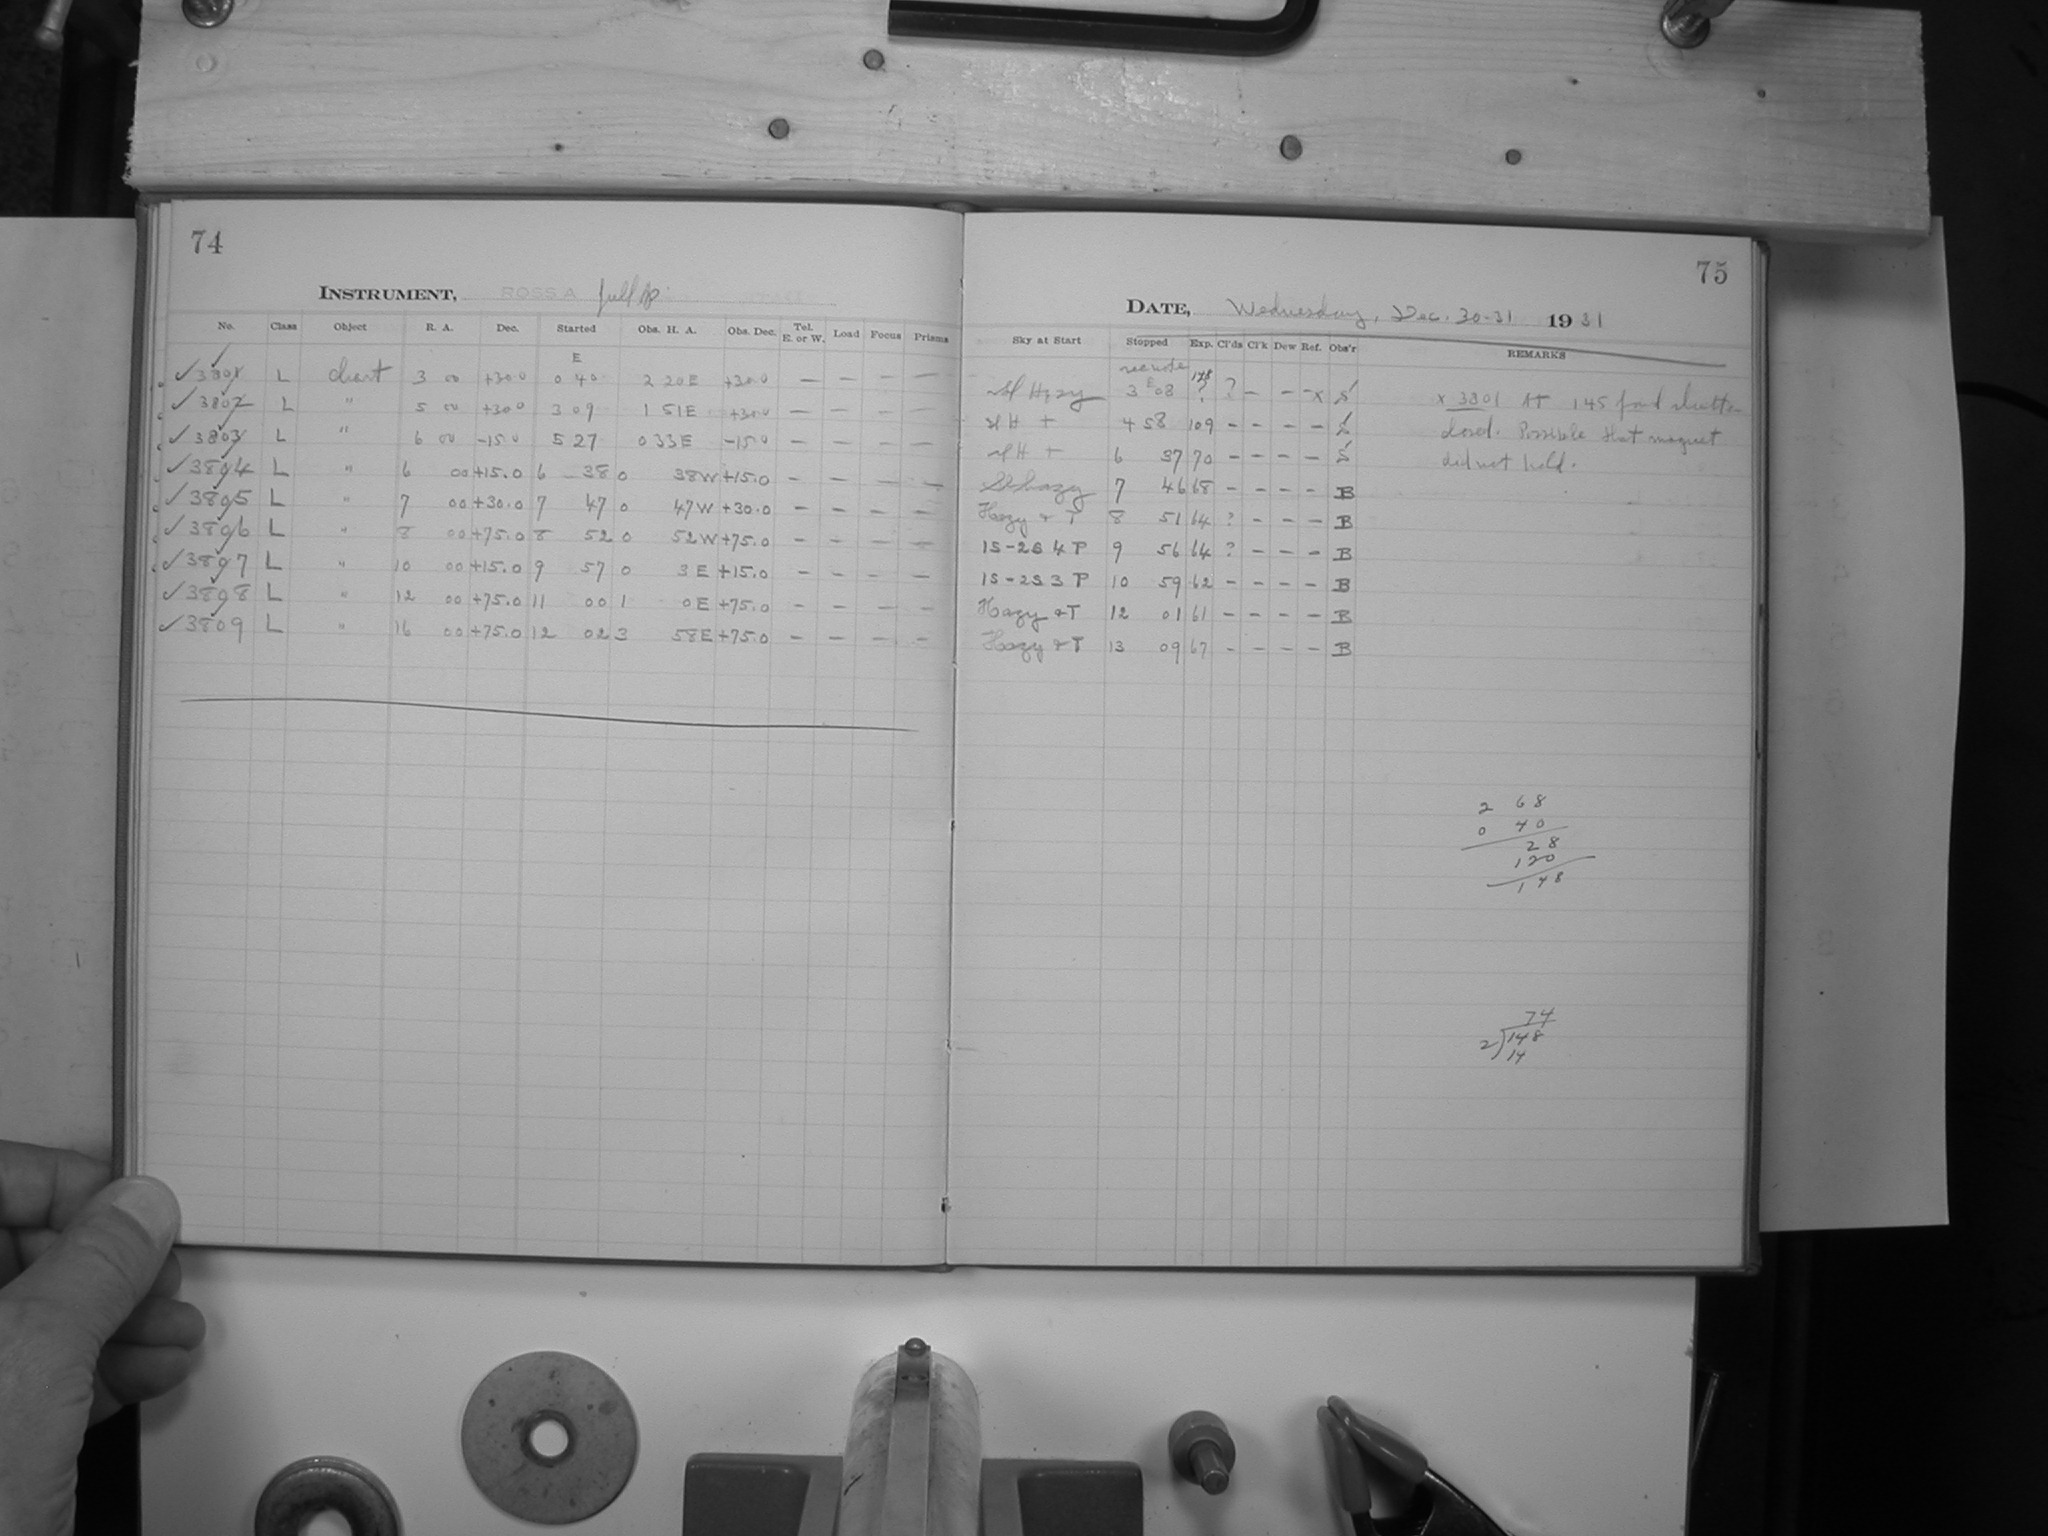 74
INSTRUMENT, ROSS A full ap.
No. Class Object R. A. Dec. Started Obs. H. A. Obs. Dec. Tel. E. or W. Load Focus Prisms
E
✓ 3801 L chart 3 00 +30.0 0 40 2 20E +30.0 — — — —
✓ 3802 L " 5 00 +30.0 3 09 1 51E +30.0 — — — —
✓ 3803 L " 6 00 -15.0 5 27 0 33E -15.0 — — — —
✓ 3804 L " 6 00 +15.0 6 38 0 38W +15.0 — — — —
✓ 3805 L " 7 00 +30.0 7 47 0 47W +30.0 — — — —
✓ 3806 L " 8 00 +75.0 8 52 0 52W +75.0 — — — —
✓ 3807 L " 10 00 +15.0 9 57 0 3E +15.0 — — — —
✓ 3808 L " 12 00 +75.0 11 00 1 0E +75.0 — — — —
✓ 3809 L " 16 00 +75.0 12 02 3 58E +75.0 — — — —
75
DATE, Wednesday, Dec. 30-31 1931
Sky at Start Stopped Exp. Cl'ds Cl'k Dew Ref. Obs'r REMARKS
see note 148
Sl Hazy 3 E 08 ? ? – – x S
Sl H + 4 58 109 – – – – S
Sl H + 6 37 70 – – – – S
Sl hazy 7 46 68 – – – – B
Hazy & T 8 51 64 ? – – – B
1S-2S 4 P 9 56 64 ? – – – B
1S-2S 3 P 10 59 62 – – – – B
Hazy & T 12 01 61 – – – – B
Hazy & T 13 09 67 – – – – B
x 3801 AT 145 found shutter
closed. Possible that magnet
did not hold.
2 68
0 40
28
120
148
74
2)148
14